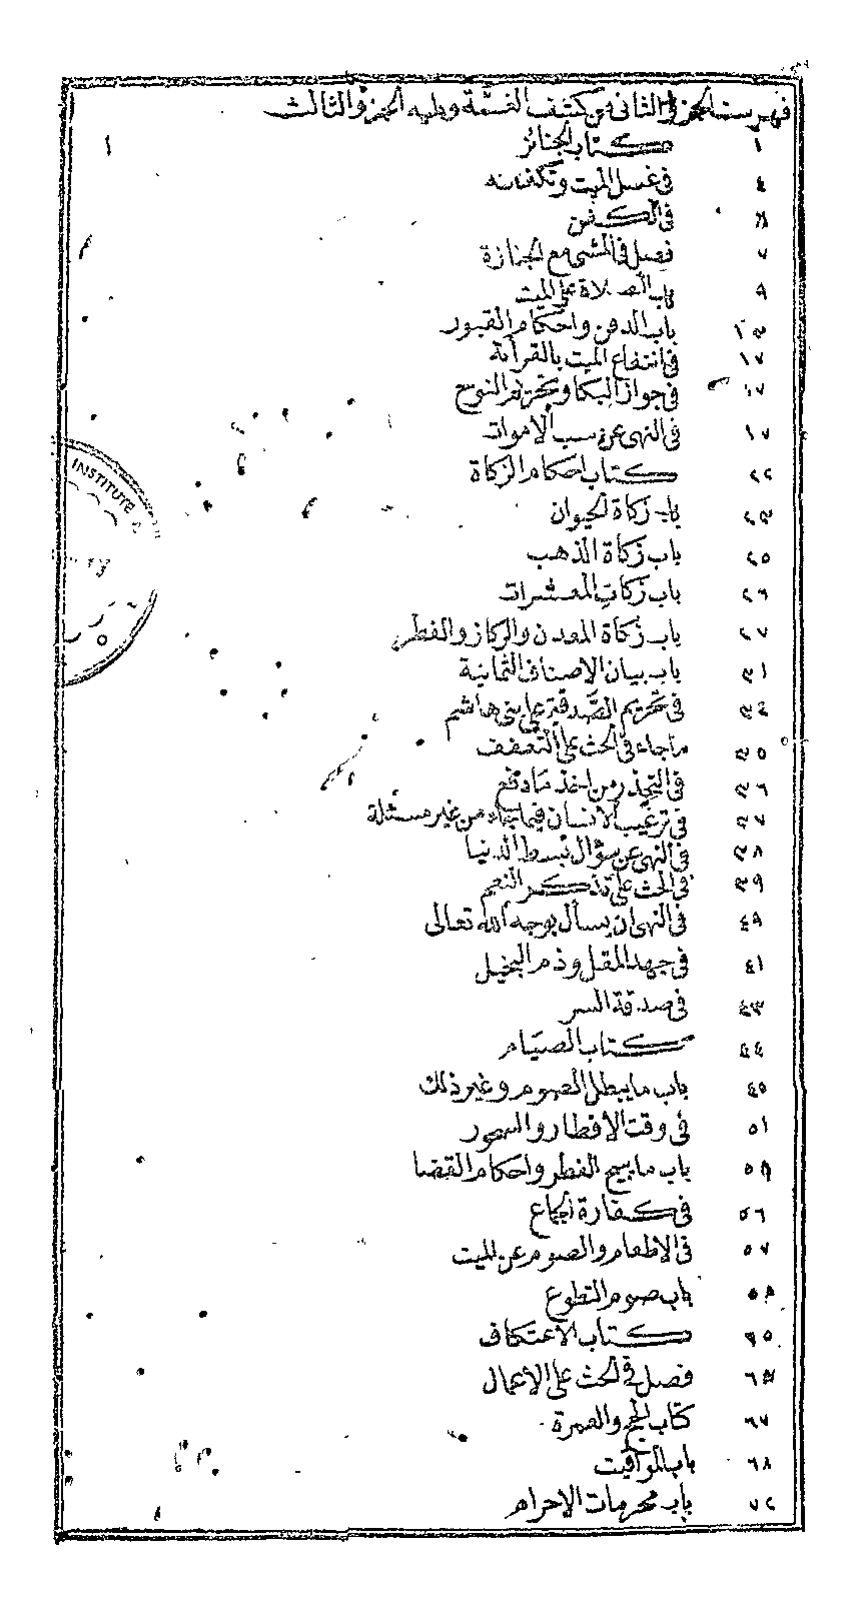 فهرست الجزء الثاني من كشف الغمة ويليه الجزء الثالث
١ كتاب الجنائز ١
٤ في غسل الميت وتكفينه
في الكفن
٧ فصل في المشي مع الجنازة
٩ باب الصلاة على الميت
باب الدفن واحكام القبور
١٧ في انتفاع الميت بالقرأة
١٧ في جواز البكا وتحريم النوح
١٧ في النهى عن سب الاموات
٢٢ كتاب احكام الزكاة
باب زكاة الحيوان
٢٥ باب زكاة الذهب
٢٦ باب زكات المعشرات
٢٧ باب زكاة المعدن والركاز والفطر
٣١ باب بيان الاصناف الثمانية
٣٤ في تحريم الصّدقة على بنى هاشم
٣٥ ماجاء في الحث على التعفف
٣٦ في التحذير من اخذ مادفع
٣٧ في ترغيب الانسان فيما جاءه من غير مسئلة
٣٨ في النهى عن سؤال بسط الدنيا
٣٩ في الحث على تذكر النعم
٤٩ في النهى ان يسأل بوجه الله تعالى
٤١ في جهد المقل وذم البخيل
٤٣ في صدقة السر
٤٤ كتاب الصيام
٤٥ باب مايبطل الصوم وغير ذلك
٥١ في وقت الافطار والسحور
باب مايبيح الفطر واحكام القضا
٥٦ في كفارة الجماع
٥٧ في الاطعام والصوم عن الميت
باب صوم التطوع
كتاب الاعتكاف
فصل في الحث على الاعمال
٦٧ كتاب الحج والعمرة
٦٨ باب المواقيت
٧٢ باب محرمات الاحرام
INSTITUTE